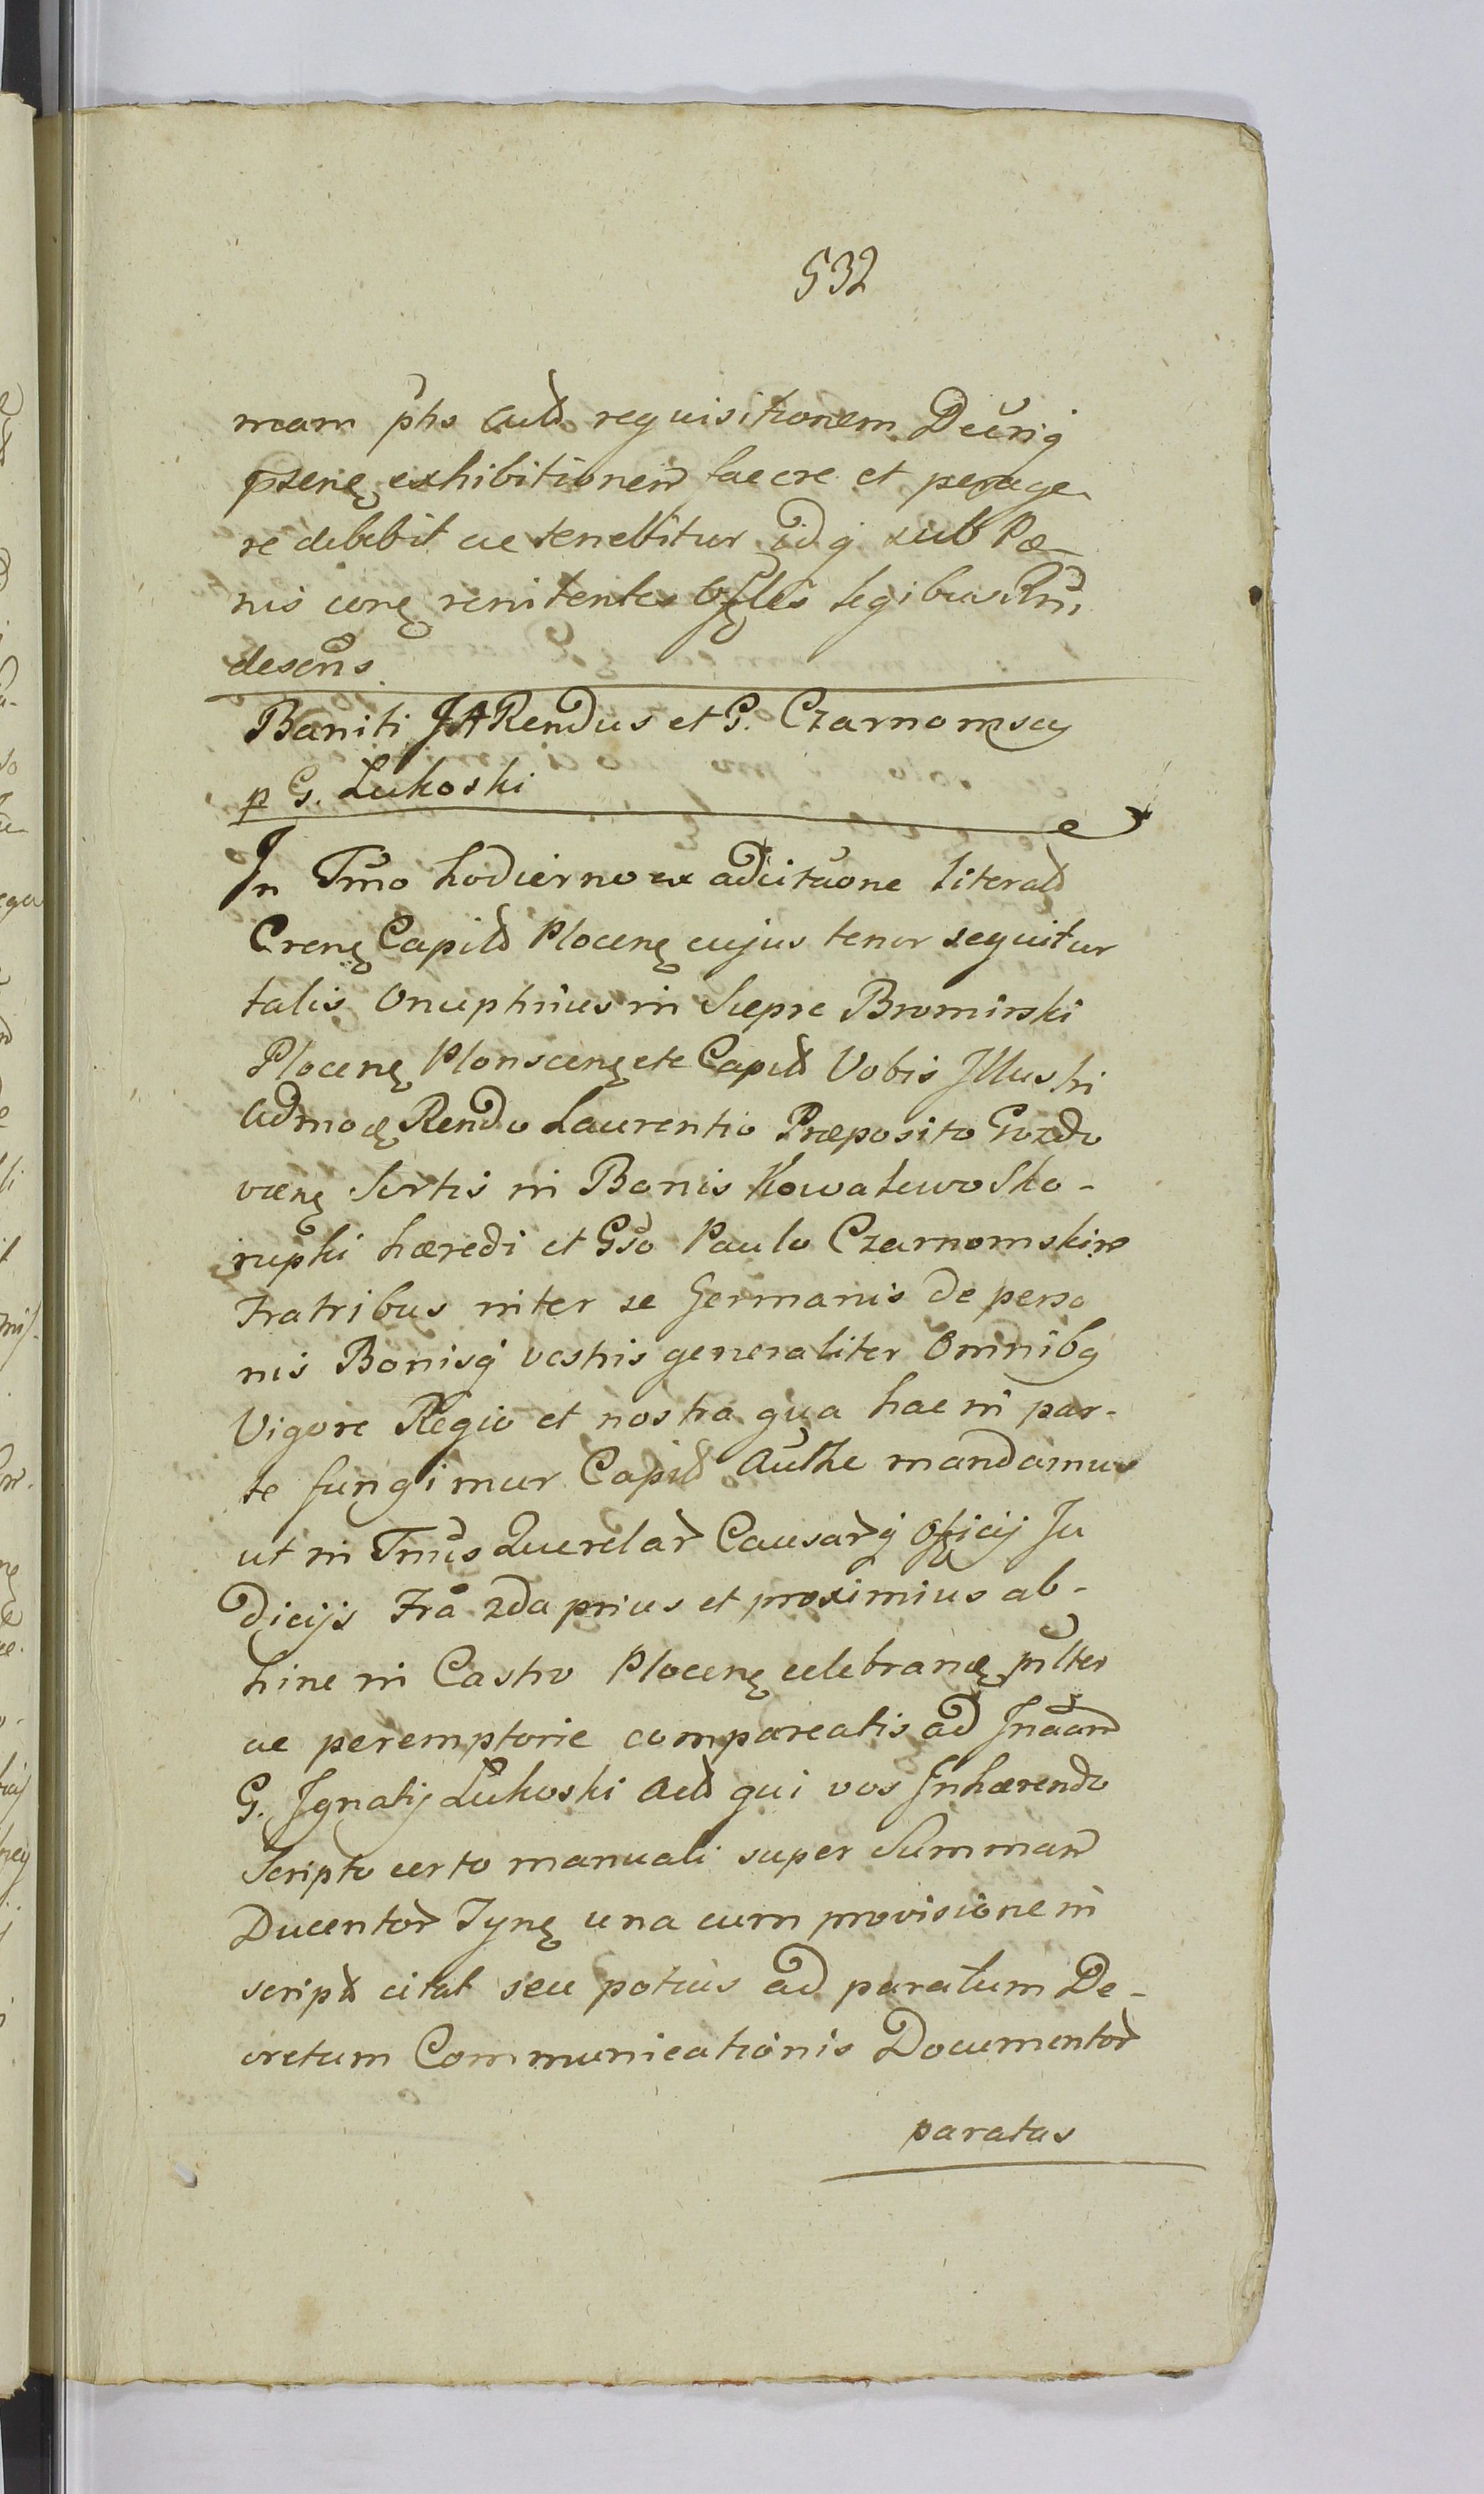 532
mam pħs Actd requisitionem Decrrig
pzenę exhibitionem facere et perage
re debebit ac tenebitur idq sub Pœ-
nis conę renitentes Offles legibus Rni
descris
Baniti JA Rendus et G. Czarnomscy
p G. Lukoski
In Tmo hodierno ex adcitaone literali
Crenę Capild Plocenę cujus tenor sequitur
talis Onuphrius in Siepre Bromirski
Plocenę Plonscenę etc Capild Vobis Illustri
Admodę Rendo Laurentio Præposito Gozdo
væenę Sortis in Bonis Kowalewo Sko-
rupki hæredi et Gso Paulo Czarnomskim
Fratribus inter se Germanis de perso
nis Bonisq vestris generaliter Omnibq
Vigore Regia et nostra qua hac in par-
te fungimur Capild Authe mandamus
ut in Tmis Querelar Causarq Officij Ju
dicijs Fra 2da prius et proximius ab-
hinc in Castro Plocenę celebrandę pulter
ac peremptorie compareatis ad Jnaam
G. Ignatij Lukoski Actd qui vos Inhærendo
Scripto certo manuali super Summam
Ducentor Tynę una cum provisione in
scripto citat seu potius ad paratum De-
cretum Communicationis Documentor
paratas